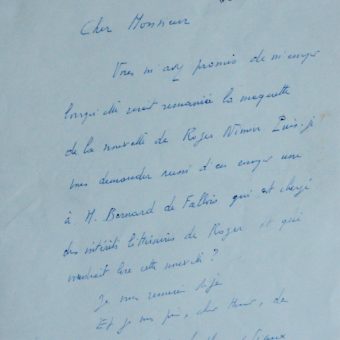 Cher Monsieur
Vous m'avez promis de m'envoyer
lorsqu'elle serait remaniée la maquette
de la nouvelle de Roger Nimier. Puis-je
vous demander aussi d'en envoyer une
à M. Bernard de Fallois qui est chargé
des intérêts littéraires de Roger et qui
voudrait lire cette nouvelle ?
Je vous remercie déjà
Et je vous prie, cher Monsieur, de